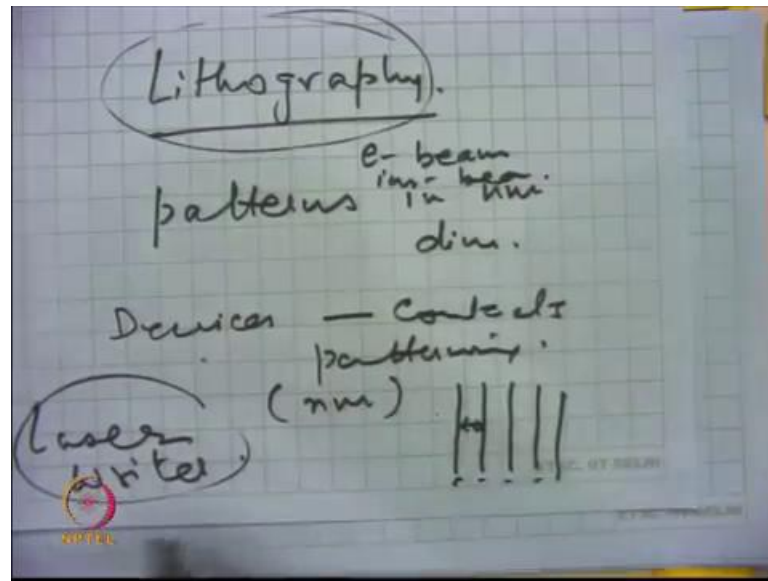 Lithography.
e-beam
ion-beam.
patterns in nm.
dim.
Devices — Contacts
patterning.
(nm)
Laser
writer.
NPTEL